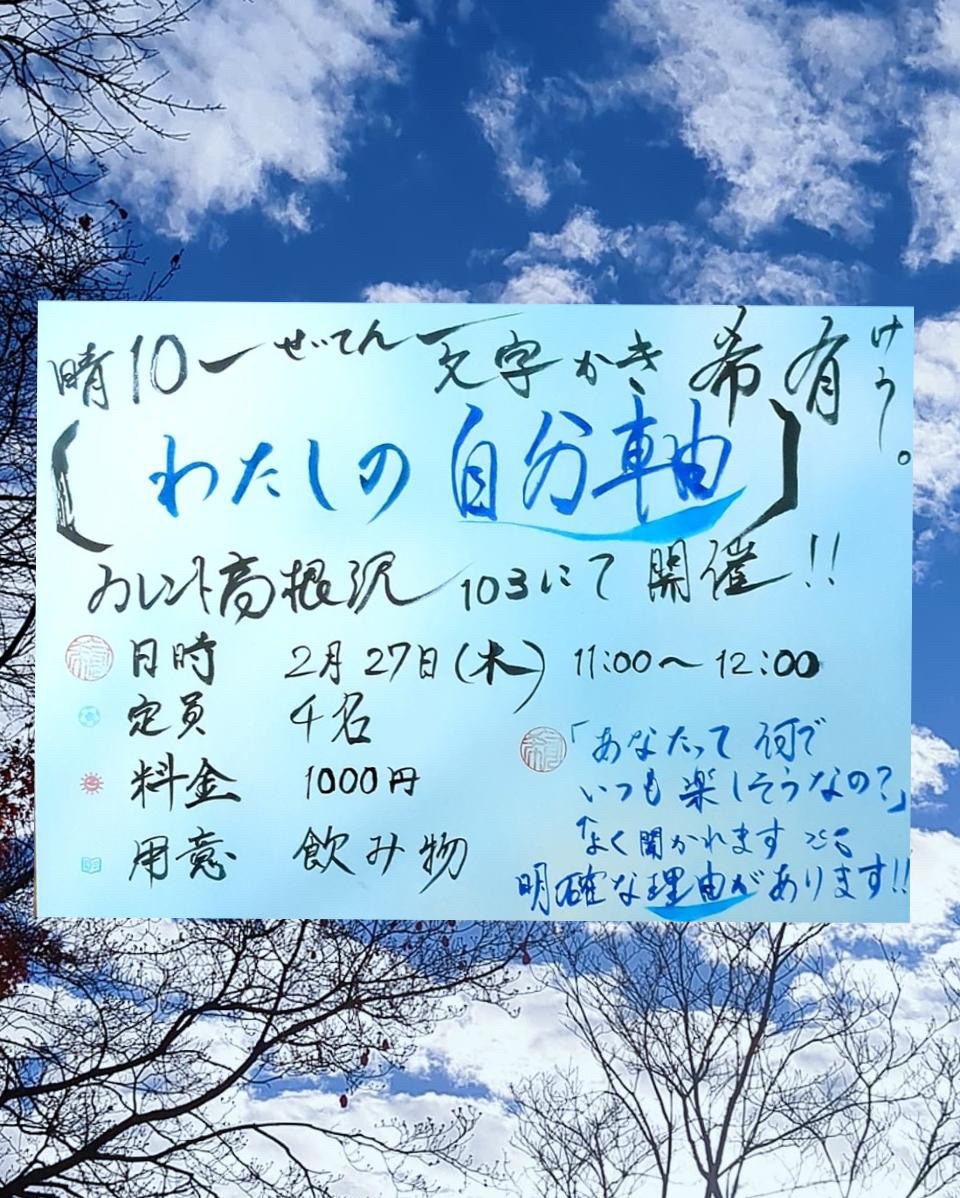 晴10ーぜてん 文字かき 希有 けう。
〔わたしの自分軸〕
カレント高根沢 103にて 開催!!
日時 2月27日(木) 11:00〜12:00
定員 4名
料金 1000円
用意 飲み物
「あなたって 何で
いつも楽しそうなの?」
よく聞かれます
明確な理由があります!!